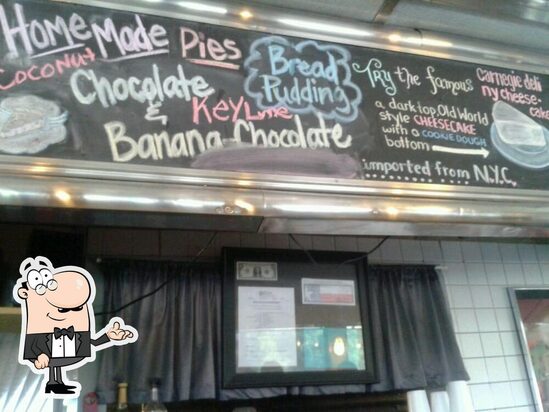 Home Made Pies
Coconut
Chocolate
& Key Lime
Banana Chocolate
Bread
Pudding
Try the famous
Carnegie deli
ny cheese-
cake
a dark top, Old World
style CHEESECAKE
with a COOKIE DOUGH
bottom
imported from N.Y.C.